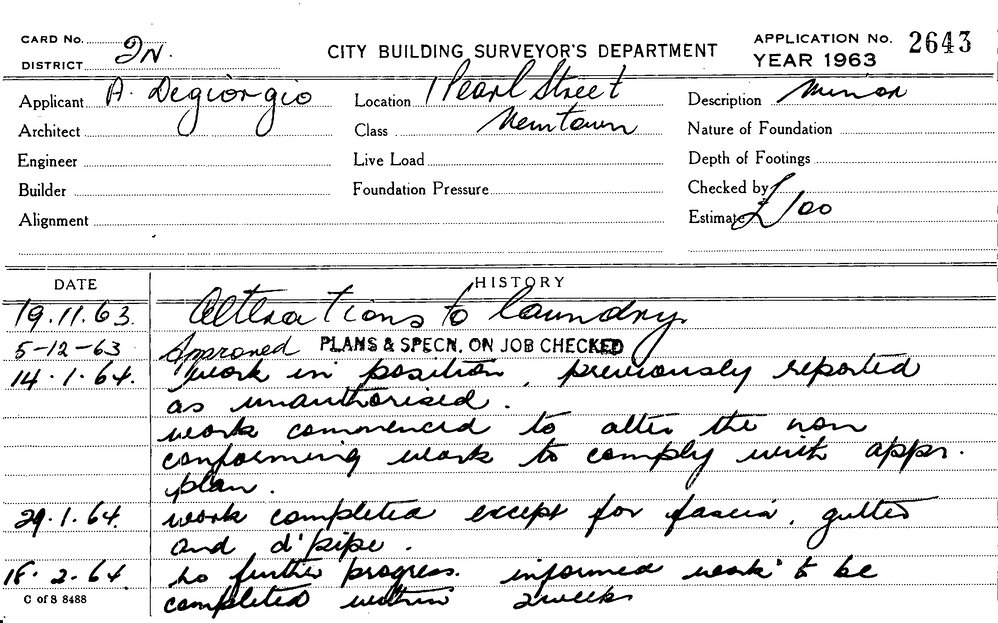 CARD No.
DISTRICT 2N.
CITY BUILDING SURVEYOR'S DEPARTMENT
APPLICATION No. 2643
YEAR 1963
Applicant A. Degiorgio
Location 1 Pearl Street
Description Minor
Architect
Class Newtown
Nature of Foundation
Engineer
Live Load
Depth of Footings
Builder
Foundation Pressure
Checked by
Alignment
Estimate £100
DATE HISTORY
19.11.63. Alterations to laundry
5-12-63 Approved PLANS & SPECN. ON JOB CHECKED
14.1.64. Work in position, previously reported
as unauthorised.
work commenced to alter the non
conforming work to comply with appr.
plan.
29.1.64. work completed except for fascia, gutter
and d'pipe.
18.2.64. No further progress. informed work to be
C of S 8488 completed within 2 weeks